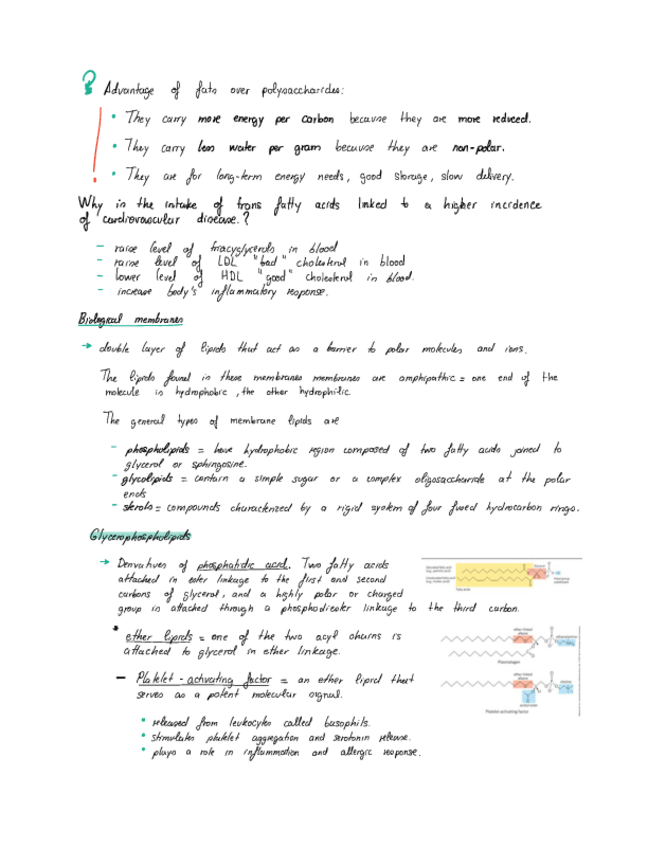 ? Advantage of fats over polysaccharides:
! • They carry more energy per carbon because they are more reduced.
• They carry less water per gram because they are non-polar.
• They are for long-term energy needs, good storage, slow delivery.
Why is the intake of trans fatty acids linked to a higher incidence
of cardiovascular disease?
- raise level of triacyglycerols in blood
- raise level of LDL "bad" cholesterol in blood
- lower level of HDL "good" cholesterol in blood.
- increase body's inflammatory response.
Biological membranes
→ double layer of lipids that act as a barrier to polar molecules and ions.
The lipids found in these membranes membranes are amphipathic = one end of the
molecule is hydrophobic, the other hydrophilic.
The general types of membrane lipids are
- phospholipids = have hydrophobic region composed of two fatty acids joined to
glycerol or sphingosine.
- glycolipids = contain a simple sugar or a complex oligosaccharide at the polar
ends
- sterols = compounds characterized by a rigid system of four fused hydrocarbon rings.
Glycerophospholipids
→ Derivatives of phosphatidic acid. Two fatty acids
attached in ester linkage to the first and second
carbons of glycerol, and a highly polar or charged
group is attached through a phosphodiester linkage to the third carbon.
* ether lipids = one of the two acyl chains is
attached to glycerol in ether linkage.
Plasmalogen
- Platelet-activating factor = an ether lipid that
serves as a potent molecular signal.
Platelet-activating factor
• released from leukocytes called basophils.
• stimulates platelet aggregation and serotonin release.
• plays a role in inflammation and allergic response.